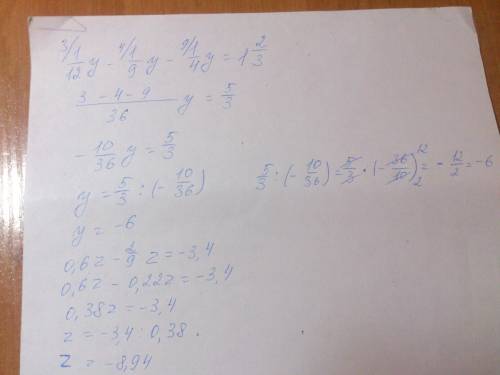 ³⁄ 1/12 y - ⁴⁄ 1/9 y - ⁹⁄ 1/4 y = 1 2/3
(3 - 4 - 9)/36 y = 5/3
- 10/36 y = 5/3
y = 5/3 : (- 10/36)
5/3 : (- 10/36) = 5/3 · (- 36/10) 12 2 = - 12/2 = -6
y = -6
0,6z - 2/9 z = -3,4
0,6z - 0,22z = -3,4
0,38z = -3,4
z = -3,4 : 0,38.
z = -8,94